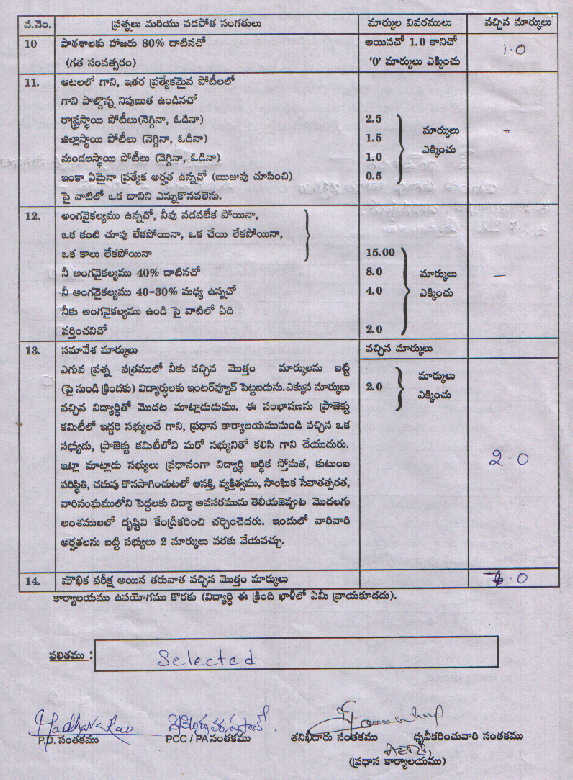 వ.నెం. ప్రశ్నలు మరియు వడపోత సంగతులు మార్కుల వివరములు వచ్చిన మార్కులు
10 పాఠశాలకు హాజరు 80% దాటినచో అయినచో 1.0 కానిచో 1.0
(గత సంవత్సరం) '0' మార్కులు ఎక్కించు
11. ఆటలలో గాని, ఇతర ప్రత్యేకమైన పోటీలలో
గాని పాల్గొన్న నిపుణుత ఉండినచో
రాష్ట్రస్థాయి పోటీలు(నెగ్గినా, ఓడినా) 2.5 మార్కులు -
జిల్లాస్థాయి పోటీలు (నెగ్గినా, ఓడినా) 1.5 ఎక్కించు
మండలస్థాయి పోటీలు (నెగ్గినా, ఓడినా) 1.0
ఇంకా ఏమైనా ప్రత్యేక అర్హత ఉన్నచో (ఋజువు చూపించి) 0.5
పై వాటిలో ఒక దానిని ఎన్నుకొనవలెను.
12. అంగవైకల్యము ఉన్నచో, నీవు నడవలేక పోయినా,
ఒక కంటి చూపు లేకపోయినా, ఒక చేయి లేకపోయినా,
ఒక కాలు లేకపోయినా 15.00
నీ అంగవైకల్యము 40% దాటినచో 8.0 మార్కులు -
నీ అంగవైకల్యము 40-30% మధ్య ఉన్నచో 4.0 ఎక్కించు
నీకు అంగవైకల్యము ఉండి పై వాటిలో ఏది
వర్తించనిచో 2.0
13. సమావేశ మార్కులు వచ్చిన మార్కులు
ఎగువ ప్రశ్న పత్రములో నీకు వచ్చిన మొత్తం మార్కులను బట్టి 2.0 మార్కులు
(పై నుండి క్రిందకు) విద్యార్థులకు ఇంటర్వ్యూకి పెట్టబడును. ఎక్కువ మార్కులు ఎక్కించు
వచ్చిన విద్యార్థితో మొదట మాట్లాడుదుము. ఈ సంభాషణను ప్రాజెక్టు
కమిటీలో ఇద్దరి సభ్యులచే గాని, ప్రధాన కార్యాలయమునుండి వచ్చిన ఒక
సభ్యుడు, ప్రాజెక్టు కమిటీలోని మరో సభ్యునితో కలిసి గాని చేయుదురు. 2.0
ఇట్లా మాట్లాడు సభ్యులు ప్రధానంగా విద్యార్థి ఆర్థిక స్తోమత, కుటుంబ
పరిస్థితి, చదువు కొనసాగించుటలో ఆసక్తి, వ్యక్తిత్వము, సాంఘిక సేవాతత్పరత,
వారిసంఘములోని పెద్దలకు విద్యా అవసరమును తెలియజెప్పుట మొదలగు
అంశములలో దృష్టిని కేంద్రీకరించి చర్చించెదరు. ఇందులో వారివారి
అర్హతలను బట్టి సభ్యులు 2 మార్కులు వరకు వేయవచ్చు.
14. మౌఖిక పరీక్ష అయిన తరువాత వచ్చిన మొత్తం మార్కులు
కార్యాలయము ఉపయోగము కొరకు (విద్యార్థి ఈ క్రింది ఖాళీలో ఏమీ వ్రాయకూడదు).
ఫలితము : Selected
P.D. సంతకము PCC / PA సంతకము తనిఖీదారు సంతకము ధృవీకరించువారి సంతకము
(ప్రధాన కార్యాలయము)